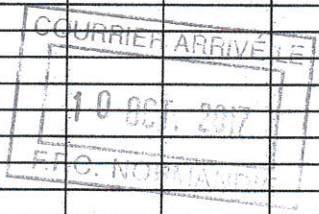 COURRIER ARRIVÉ LE
10 OCT. 2017
F.P.C. NORMANDIE